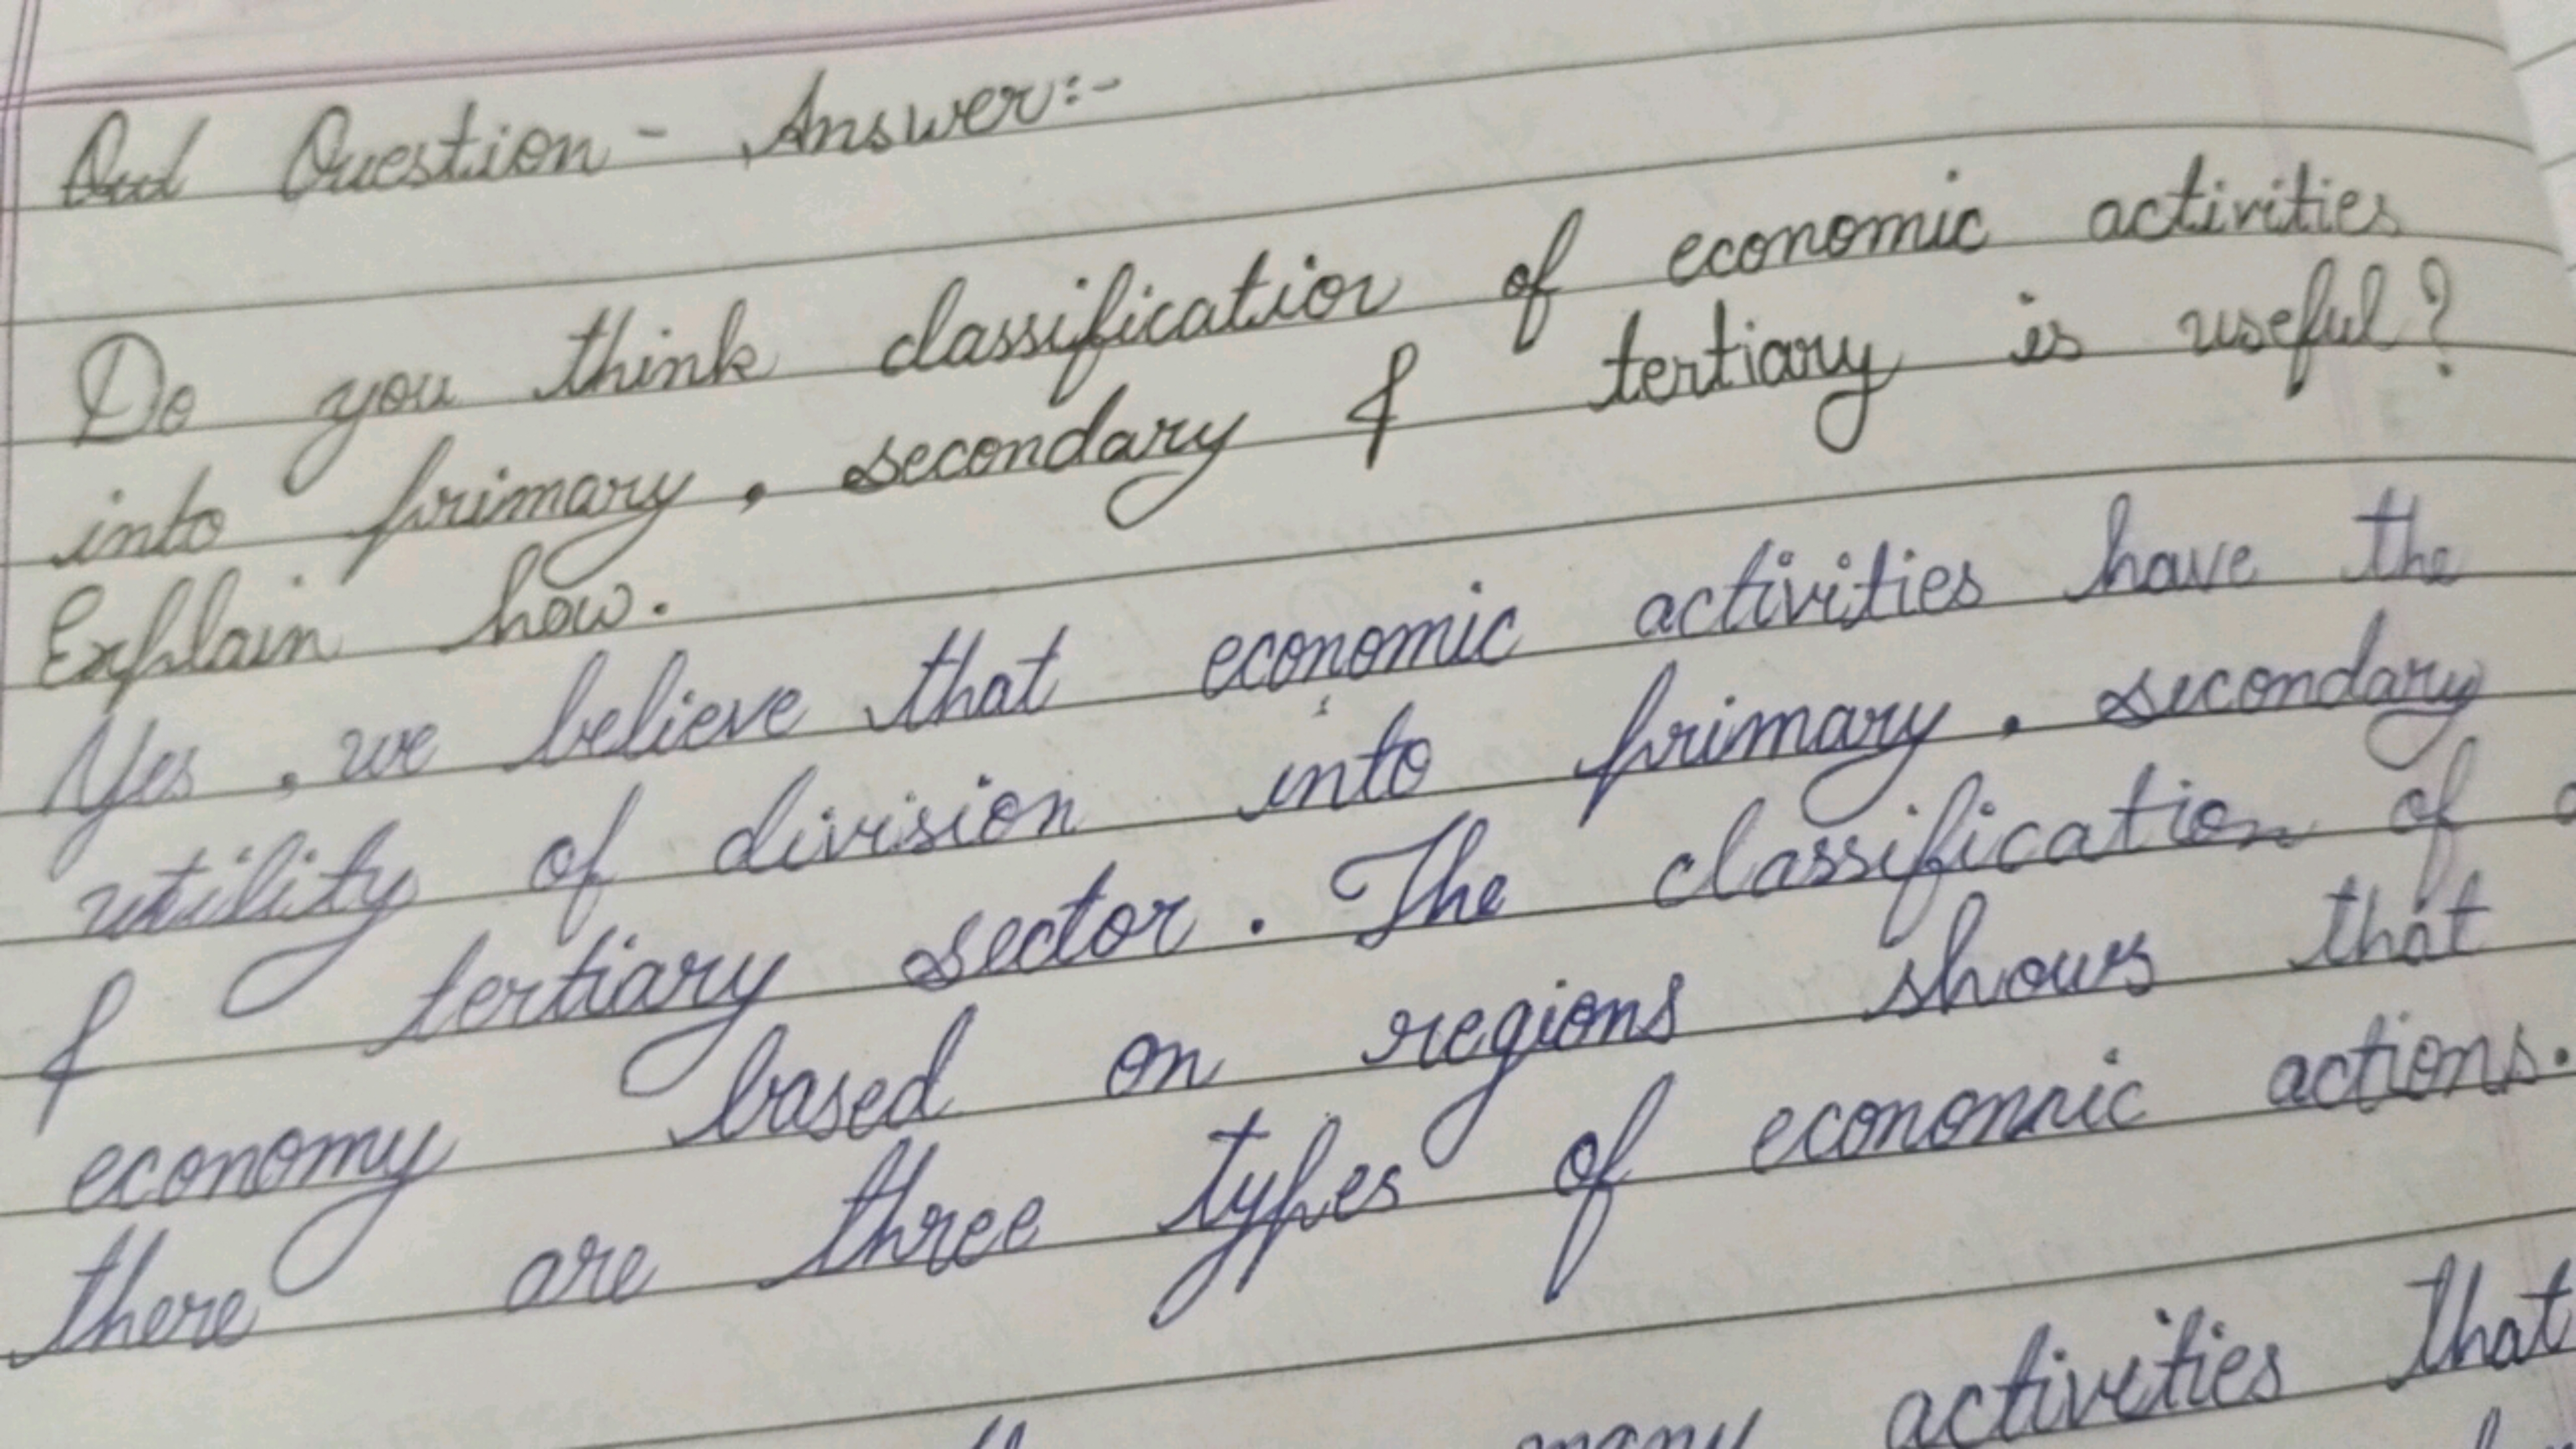 Question - Answer:-
Do you think classification of economic activities
into primary, secondary & tertiary is useful?
Explain how.
Yes, we believe that economic activities have the
utility of division into primary, secondary
& tertiary sector. The classification of
economy based on regions shows that
there are three types of economic actions.
many activities that